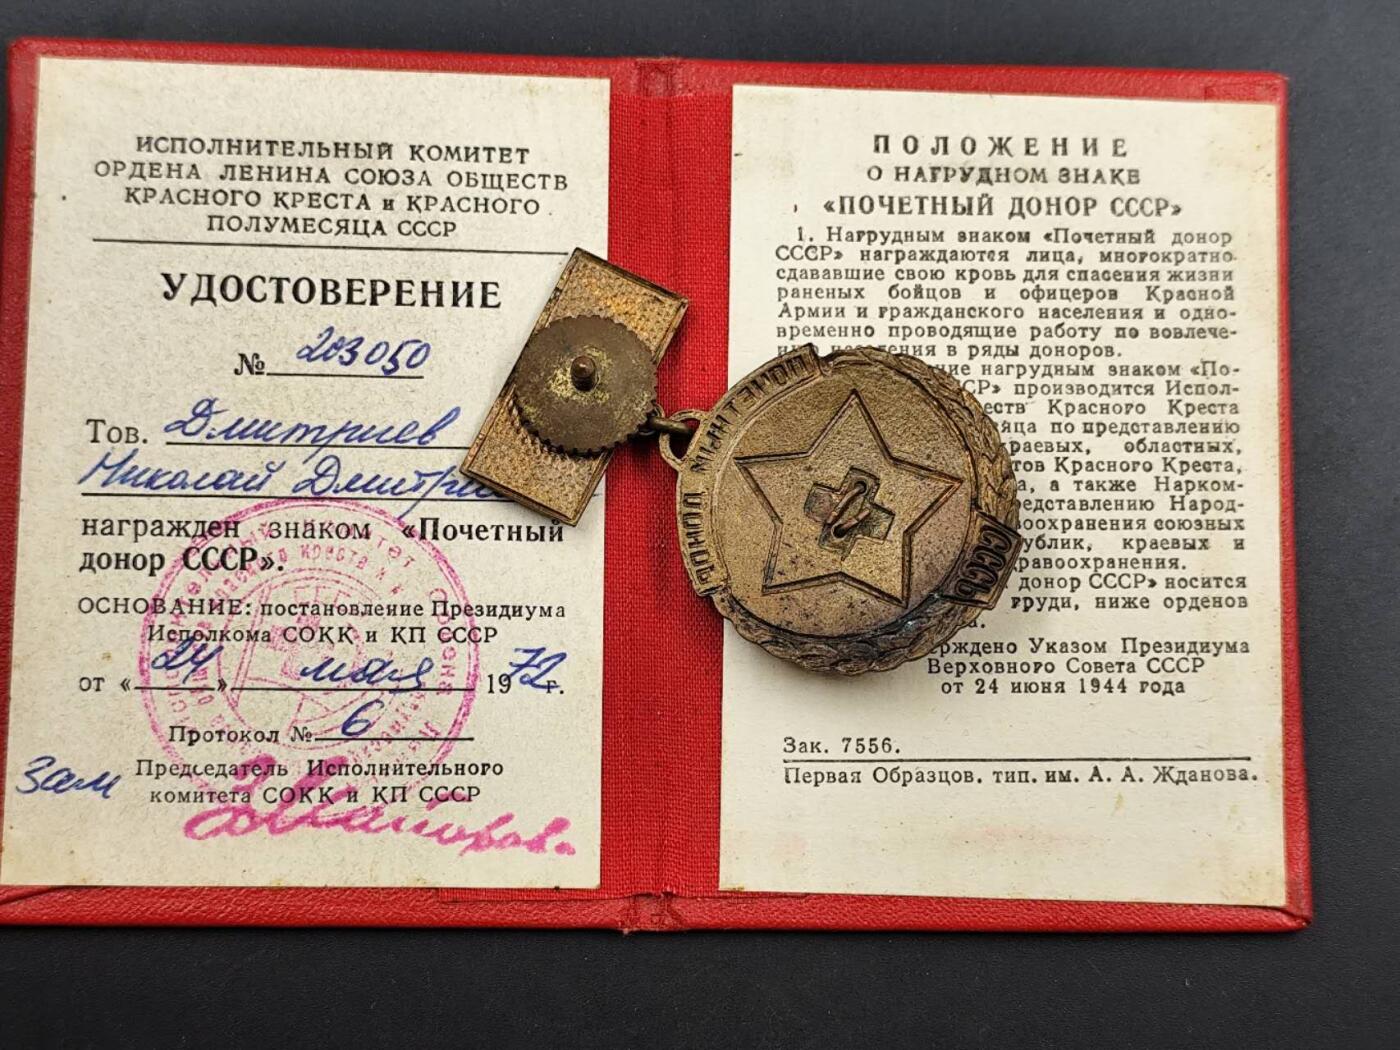 ИСПОЛНИТЕЛЬНЫЙ КОМИТЕТ
ОРДЕНА ЛЕНИНА СОЮЗА ОБЩЕСТВ
КРАСНОГО КРЕСТА и КРАСНОГО
ПОЛУМЕСЯЦА СССР
УДОСТОВЕРЕНИЕ
№ 203050
Тов. Дмитриев
Николай
награжден знаком «Почетный
донор СССР».
ОСНОВАНИЕ: постановление Президиума
Исполкома СОКК и КП СССР
от «24» мая 1972 г.
Протокол № 6
Зам Председатель Исполнительного
комитета СОКК и КП СССР
ПОЛОЖЕНИЕ
О НАГРУДНОМ ЗНАКЕ
«ПОЧЕТНЫЙ ДОНОР СССР»
1. Нагрудным знаком «Почетный донор
СССР» награждаются лица, многократно
сдававшие свою кровь для спасения жизни
раненых бойцов и офицеров Красной
Армии и гражданского населения и одно-
временно проводящие работу по вовлече-
в ряды доноров.
нагрудным знаком «По-
производится Испол-
Красного Креста
по представлению
областных,
Красного Креста,
а также Нарком-
Народ-
союзных
краевых и
донор СССР» носится
груди, ниже орденов
Указом Президиума
Верховного Совета СССР
от 24 июня 1944 года
Зак. 7556.
Первая Образцов. тип. им. А. А. Жданова.